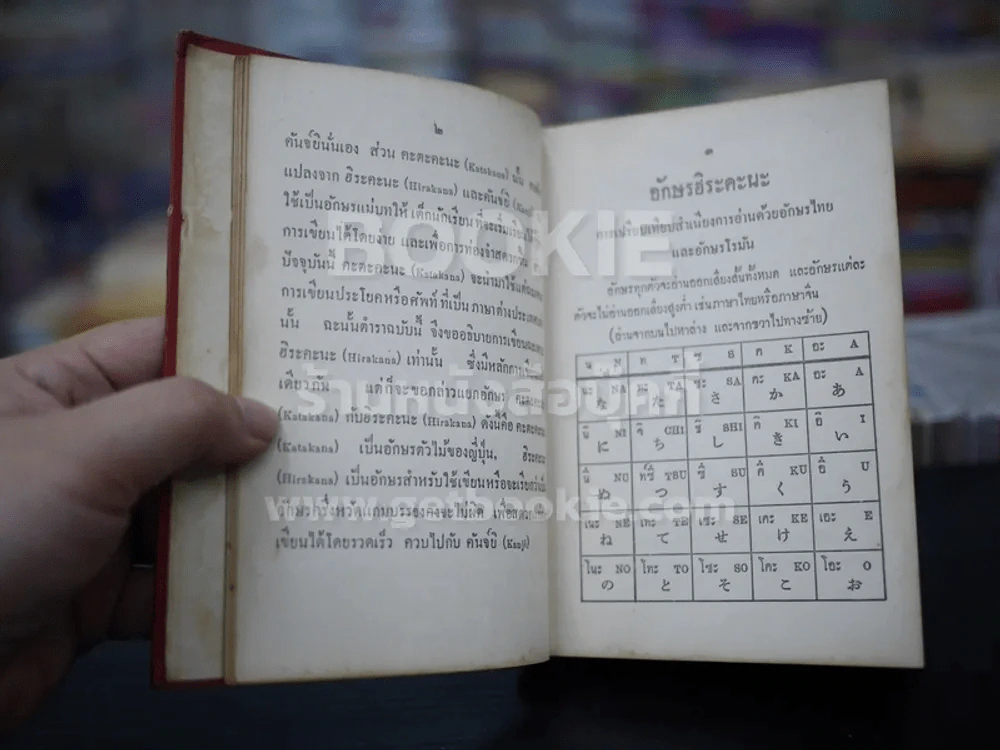 ๒
คันจ์ยินั่นเอง ส่วน คะตะคะนะ (Katakana) นั้น
แปลงจาก ฮิระคะนะ (Hirakana) และคันจ์ยิ
ใช้เป็นอักษรแม่บทให้ เด็กนักเรียน ที่จะเริ่มเรียน
การเขียนได้โดยง่าย และเพื่อการท่องจำสะดวก
ปัจจุบันนี้ คะตะคะนะ (Katakana) จะนำมาใช้แต่เฉพาะ
การเขียนประโยคหรือศัพท์ ที่เป็น ภาษาต่างประเทศ
นั้น ฉะนั้นตำราฉบับนี้ จึงขออธิบายการเขียน
ฮิระคะนะ (Hirakana) เท่านั้น ซึ่งมีหลักการเขียน
เดียวกัน แต่ก็จะขอกล่าวแยกอักษร คะตะคะนะ
(Katakana) กับฮิระคะนะ (Hirakana) ดังนี้คือ คะตะคะนะ
(Katakana) เป็นอักษรตัวไม้ของญี่ปุ่น, ฮิระคะนะ
(Hirakana) เป็นอักษรสำหรับใช้เขียนหรือจะเรียกว่าเป็น
อักษรครึ่งหวัดแกมบรรจงคงจะไม่ผิด เพื่อสะดวก
เขียนได้โดยรวดเร็ว ควบไปกับ คันจ์ยิ (Kanji)
๓
อักษรฮิระคะนะ
การเปรียบเทียบสำเนียงการอ่านด้วยอักษรไทย
และอักษรโรมัน
อักษรทุกตัวจะอ่านออกเสียงสั้นทั้งหมด และอักษรแต่ละ
ตัวจะไม่อ่านออกเสียงสูงต่ำ เช่นภาษาไทยหรือภาษาจีน
(อ่านจากบนไปหาล่าง และจากขวาไปทางซ้าย)
น N ท T ซ S ค K อะ A
นะ NA ทะ TA ซะ SA คะ KA อะ A
な た さ か あ
นิ NI จิ CHI ชิ SHI คิ KI อิ I
に ち し き い
นึ NU ทซึ TSU ซึ SU คึ KU อึ U
ぬ つ す く う
เนะ NE เทะ TE เซะ SE เคะ KE เอะ E
ね て せ け え
โนะ NO โทะ TO โซะ SO โคะ KO โอะ O
の と そ こ お
BOOKIE
ร้านหนังสือบุ๊คกี้
www.getbookie.com